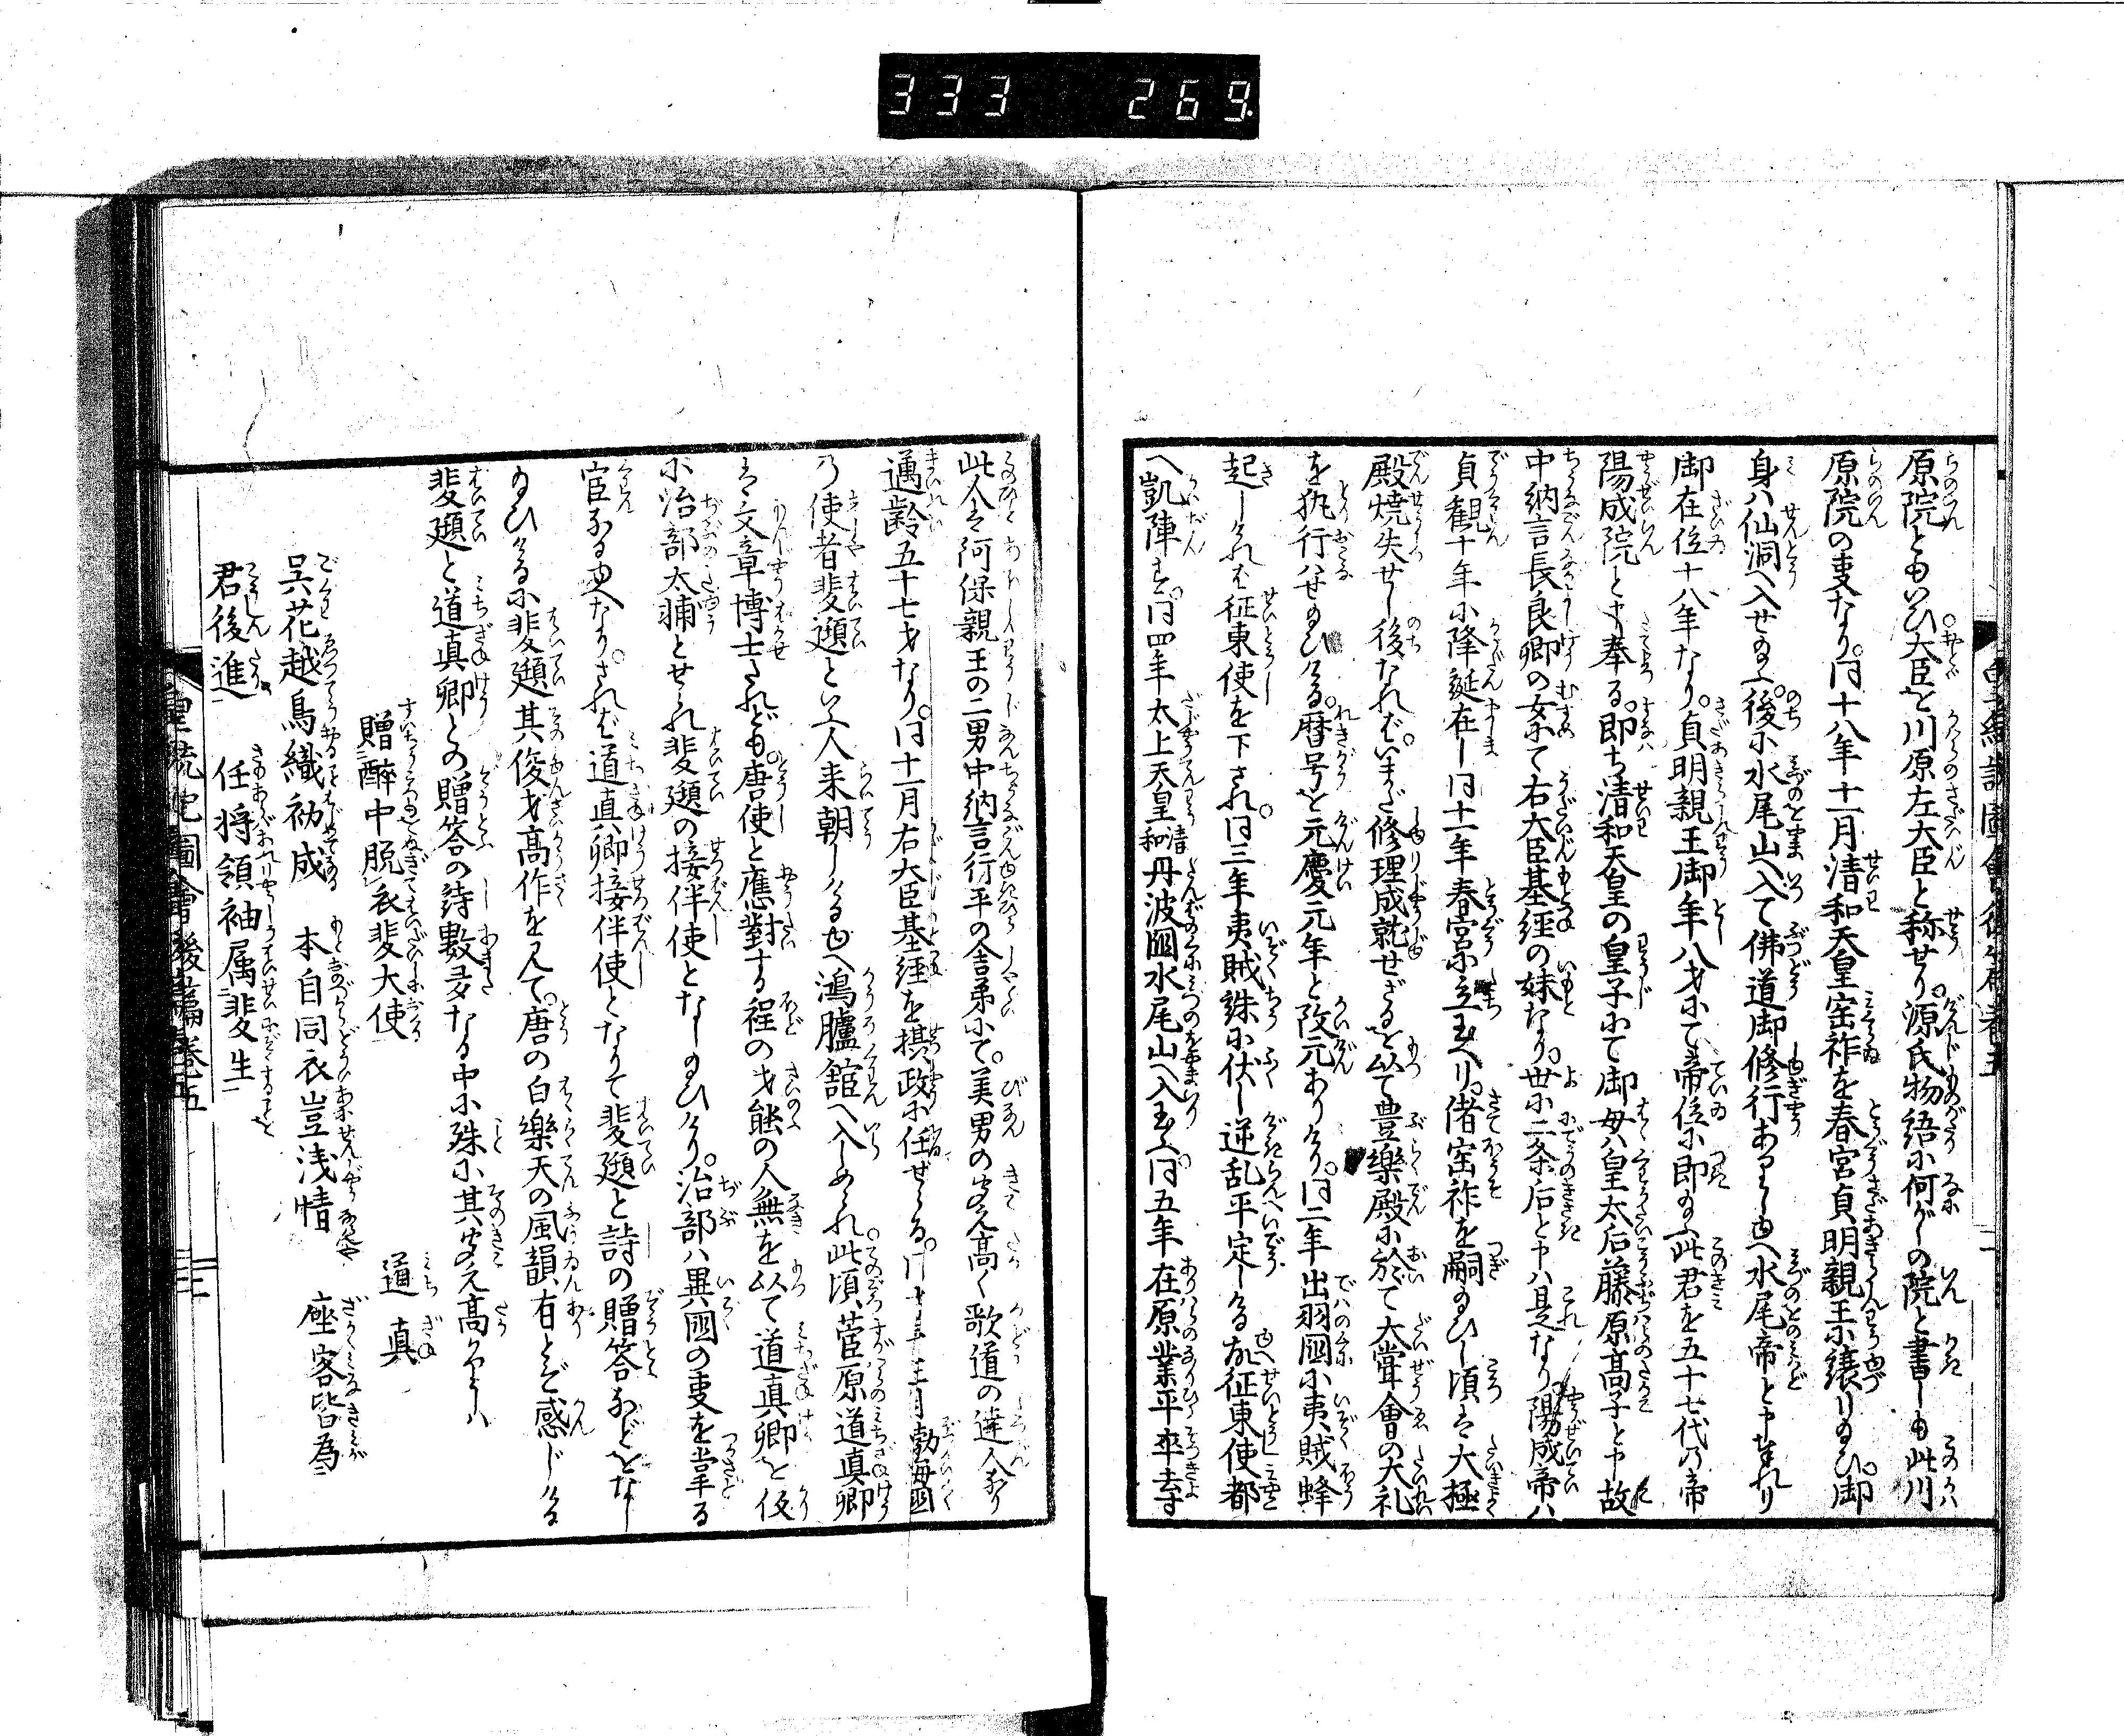 333 269
原院ともいひ大臣を川原左大臣と称せり。源氏物語に何がしの院と書しも此川
原院の事なり。同十八年十一月清和天皇宝祚を春宮貞明親王に譲り給ひ。御
身ハ仙洞へ入せ給ふ。後に水尾山へ入て佛道御修行ありしゆへ水尾帝と申奉れり
御在位十八年なり。貞明親王御年八才にて帝位に即給ふ此君を五十七代乃帝
陽成院と申奉る。即ち清和天皇の皇子にて御母ハ皇太后藤原高子と申故
中納言長良卿の女にて右大臣基経の妹なり。世に二条后と申ハ是なり陽成帝ハ
貞観十年に降誕在し同十一年春宮に立玉へり。偖宝祚を嗣給ひし頃は大極
殿焼失せし後なれば。いまだ修理成就せざるを以て豊樂殿に於て大甞會の大礼
を執行ハせ給ひける。暦号を元慶元年と改元ありけり。同二年出羽國に夷賊蜂
起しければ征東使を下され。同三年夷賊誅に伏し逆乱平定しける故征東使都
へ凱陣す。同四年太上天皇清和丹波國水尾山へ入玉ふ。同五年在原業平卒去す
此人は阿保親王の二男中納言行平の舎弟にて。美男の聞え高く歌道の達人なり
邁齢五十七才なり。同十一月右大臣基経を摂政に任ぜらる。同七年三月勃海國
乃使者裴頲といふ人来朝しけるゆへ鴻臚舘へ入しめられ。此頃菅原道真卿
は文章博士されども。唐使と應對する程の才能の人無を以て道真卿を仮
に治部太輔とせられ裴頲の接伴使となし給ひけり。治部ハ異國の事を掌る
官なる故なり。されば道真卿接伴使となりて裴頲と詩の贈答などをなし
給ひけるに裴頲其俊才高作を見て。唐の白樂天の風韻有とぞ感じける
裴頲と道真卿との贈答の詩數多なる中に殊に其聞え高かりしハ
贈醉中脱衣裴大使
道真
呉花越鳥織初成　本自同衣豈浅情　座客皆為
君後進　任将領袖属裴生
皇統紀圖會後篇巻五